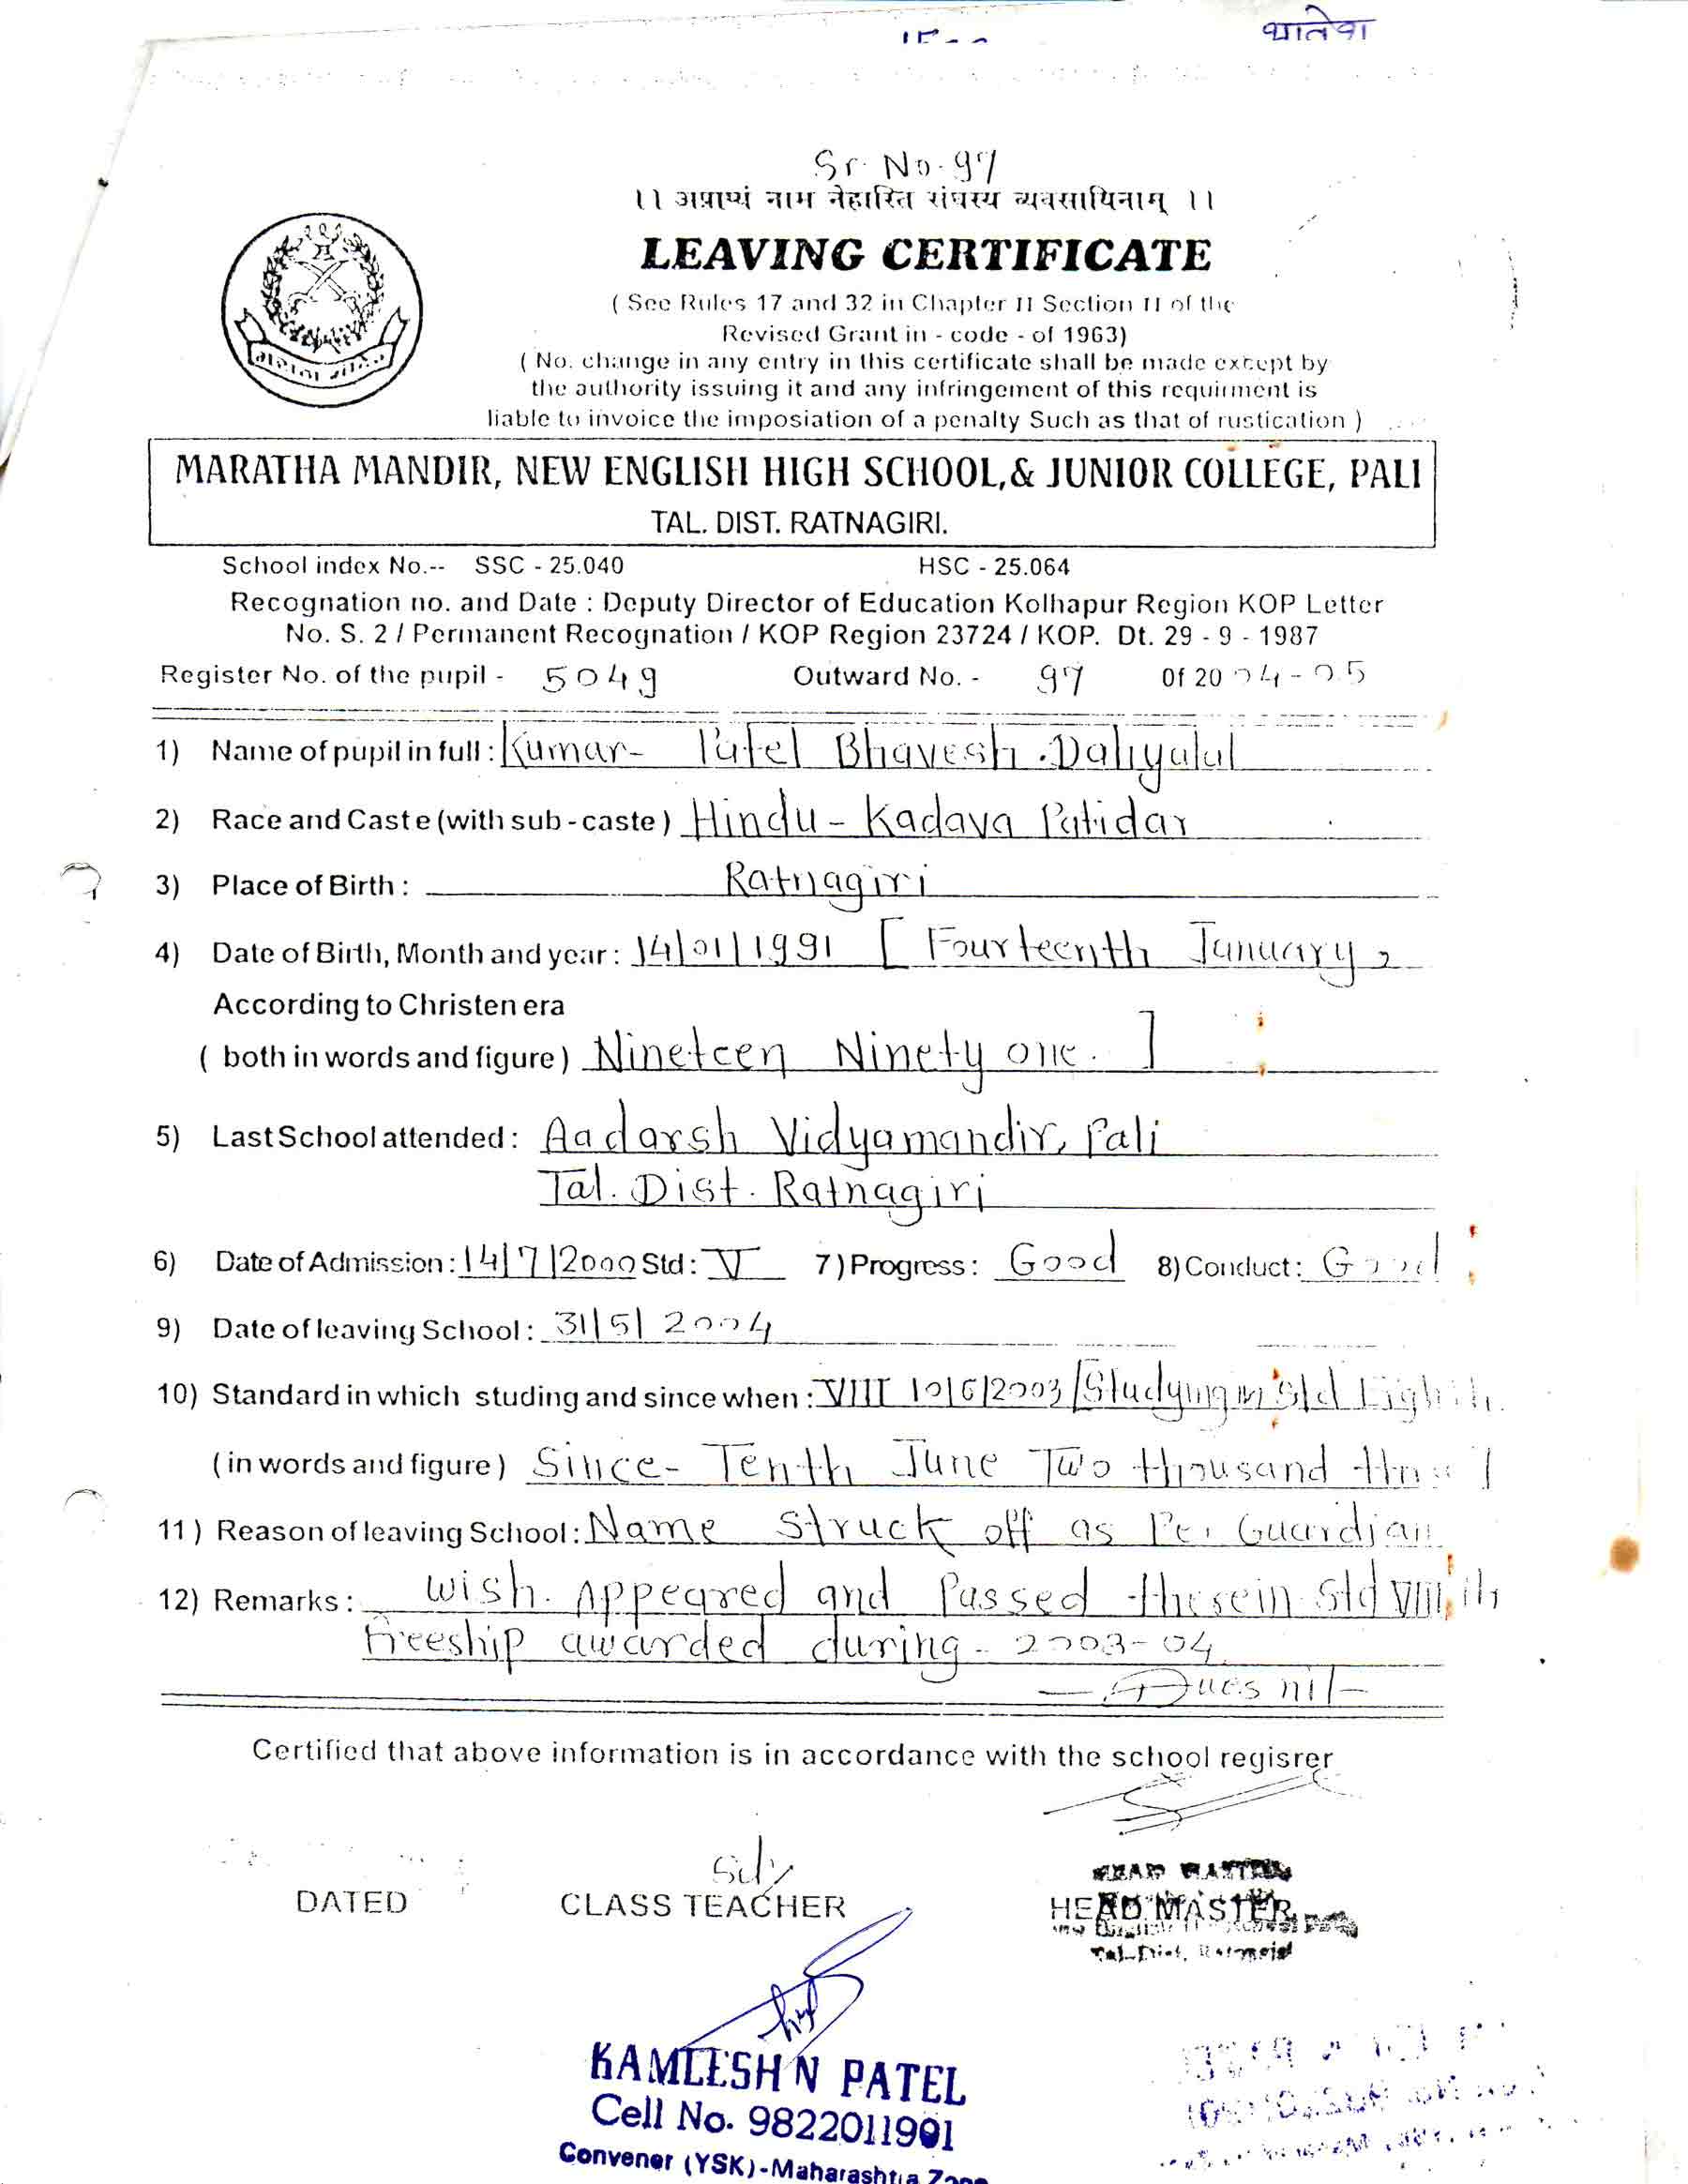 Sr. No. 97
।। अप्राप्यं नाम नेहास्ति संघस्य व्यवसायिनाम् ।।
LEAVING CERTIFICATE
( See Rules 17 and 32 in Chapter II Section II of the
Revised Grant in - code - of 1963)
( No. change in any entry in this certificate shall be made except by
the authority issuing it and any infringement of this requirment is
liable to invoice the imposiation of a penalty Such as that of rustication )
MARATHA MANDIR, NEW ENGLISH HIGH SCHOOL,& JUNIOR COLLEGE, PALI
TAL. DIST. RATNAGIRI.
School index No.-- SSC - 25.040 HSC - 25.064
Recognation no. and Date : Deputy Director of Education Kolhapur Region KOP Letter
No. S. 2 / Permanent Recognation / KOP Region 23724 / KOP. Dt. 29 - 9 - 1987
Register No. of the pupil - 5049 Outward No. - 97 Of 2004-05
1) Name of pupil in full : Kumar- Patel Bhavesh Dahyalal
2) Race and Caste (with sub - caste ) Hindu - Kadava Patidar
3) Place of Birth : Ratnagiri
4) Date of Birth, Month and year : 14/01/1991 [ Fourteenth January,
According to Christen era
( both in words and figure ) Nineteen Ninety one. ]
5) Last School attended : Aadarsh Vidyamandir, Pali
Tal. Dist. Ratnagiri
6) Date of Admission : 14/7/2000 Std : V 7) Progress : Good 8) Conduct : Good
9) Date of leaving School : 31/5/2004
10) Standard in which studing and since when : VIII 10/6/2003 [Studying in Std Eighth
( in words and figure ) Since- Tenth June Two thousand three ]
11 ) Reason of leaving School : Name struck off as Per Guardian
12) Remarks : wish. Appeared and Passed Std VIII th
Freeship awarded during - 2003-04
- Dues nil -
Certified that above information is in accordance with the school regisrer
Sd/
DATED CLASS TEACHER HEAD MASTER
KAMLESH N PATEL
Cell No. 9822011991
Convener (YSK)-Maharashtra Zone